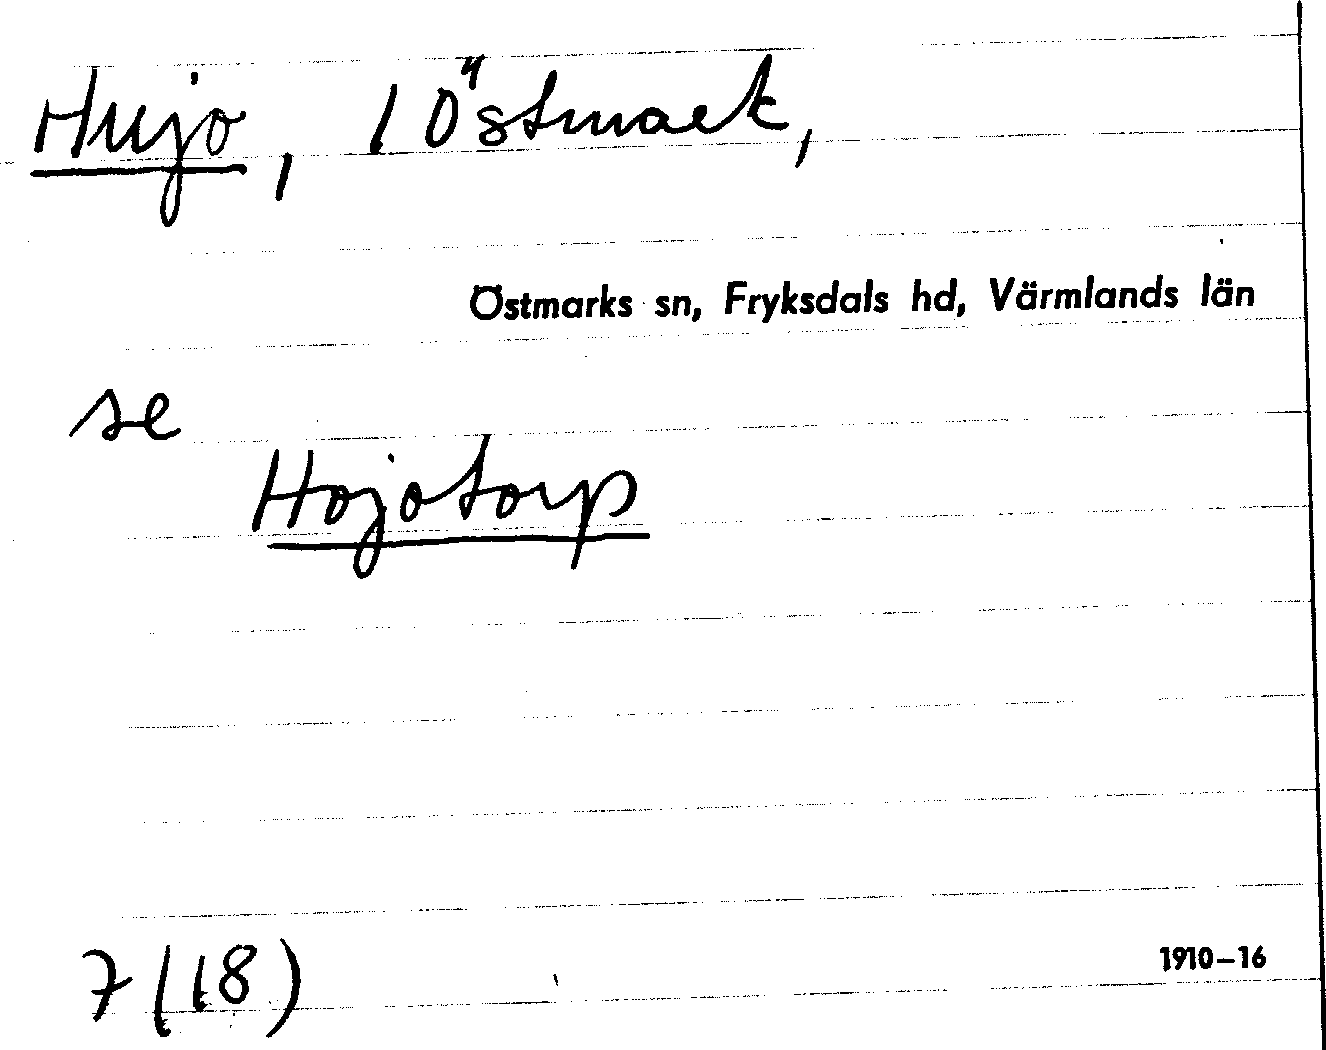 Hujo, 1 Östmark,
Östmarks sn, Fryksdals hd, Värmlands län
se
Hojotorp
7 (18)
1910–16